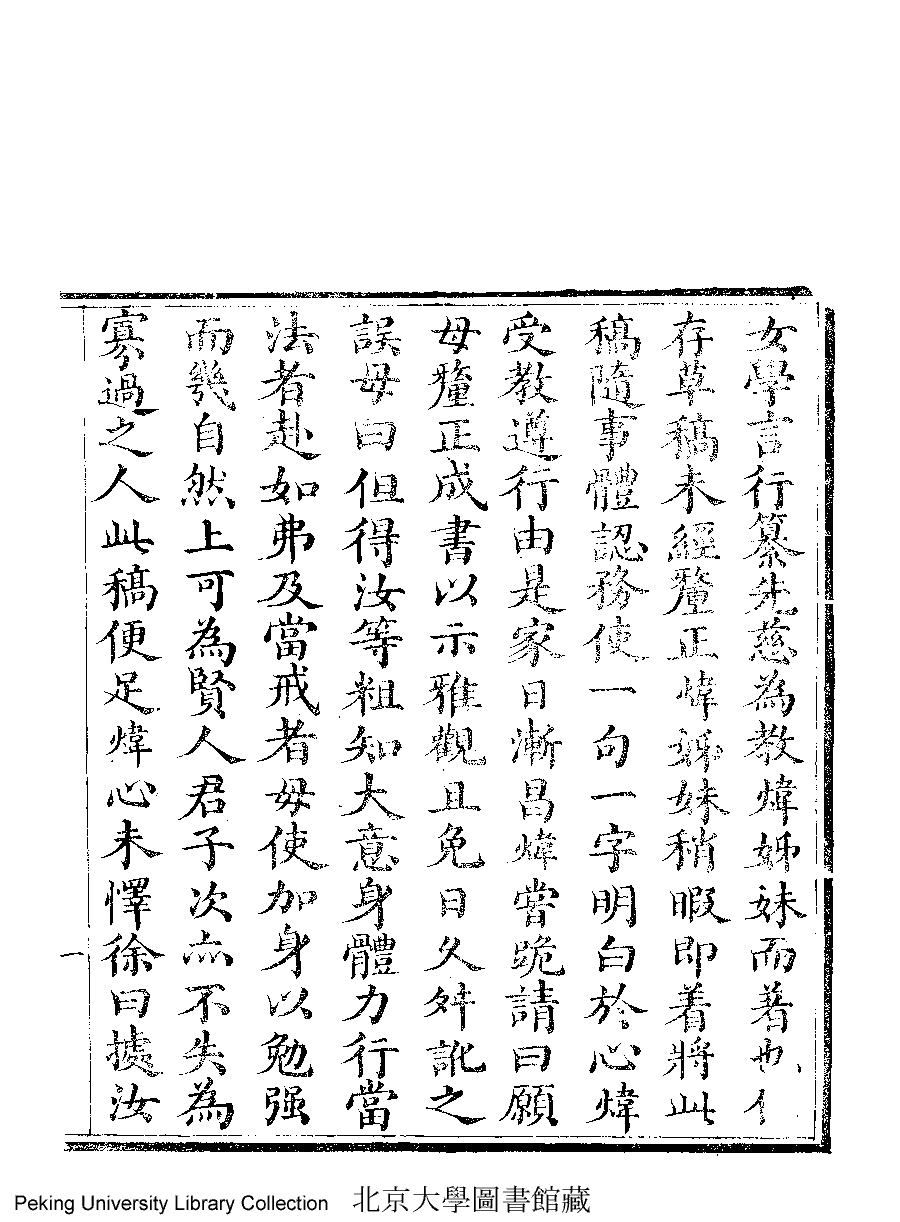 女學言行纂先慈為教煒姊妹而著也
存草稿未經釐正煒姊妹稍暇即着將此
稿隨事體認務使一句一字明白於心煒
受教遵行由是家日漸昌煒嘗跪請曰願
母釐正成書以示雅觀且免日久舛訛之
誤母曰但得汝等粗知大意身體力行當
法者赴如弗及當戒者毋使加身以勉强
而幾自然上可為賢人君子次亦不失為
寡過之人此稿便足煒心未懌徐曰據汝
一
Peking University Library Collection 北京大學圖書館藏